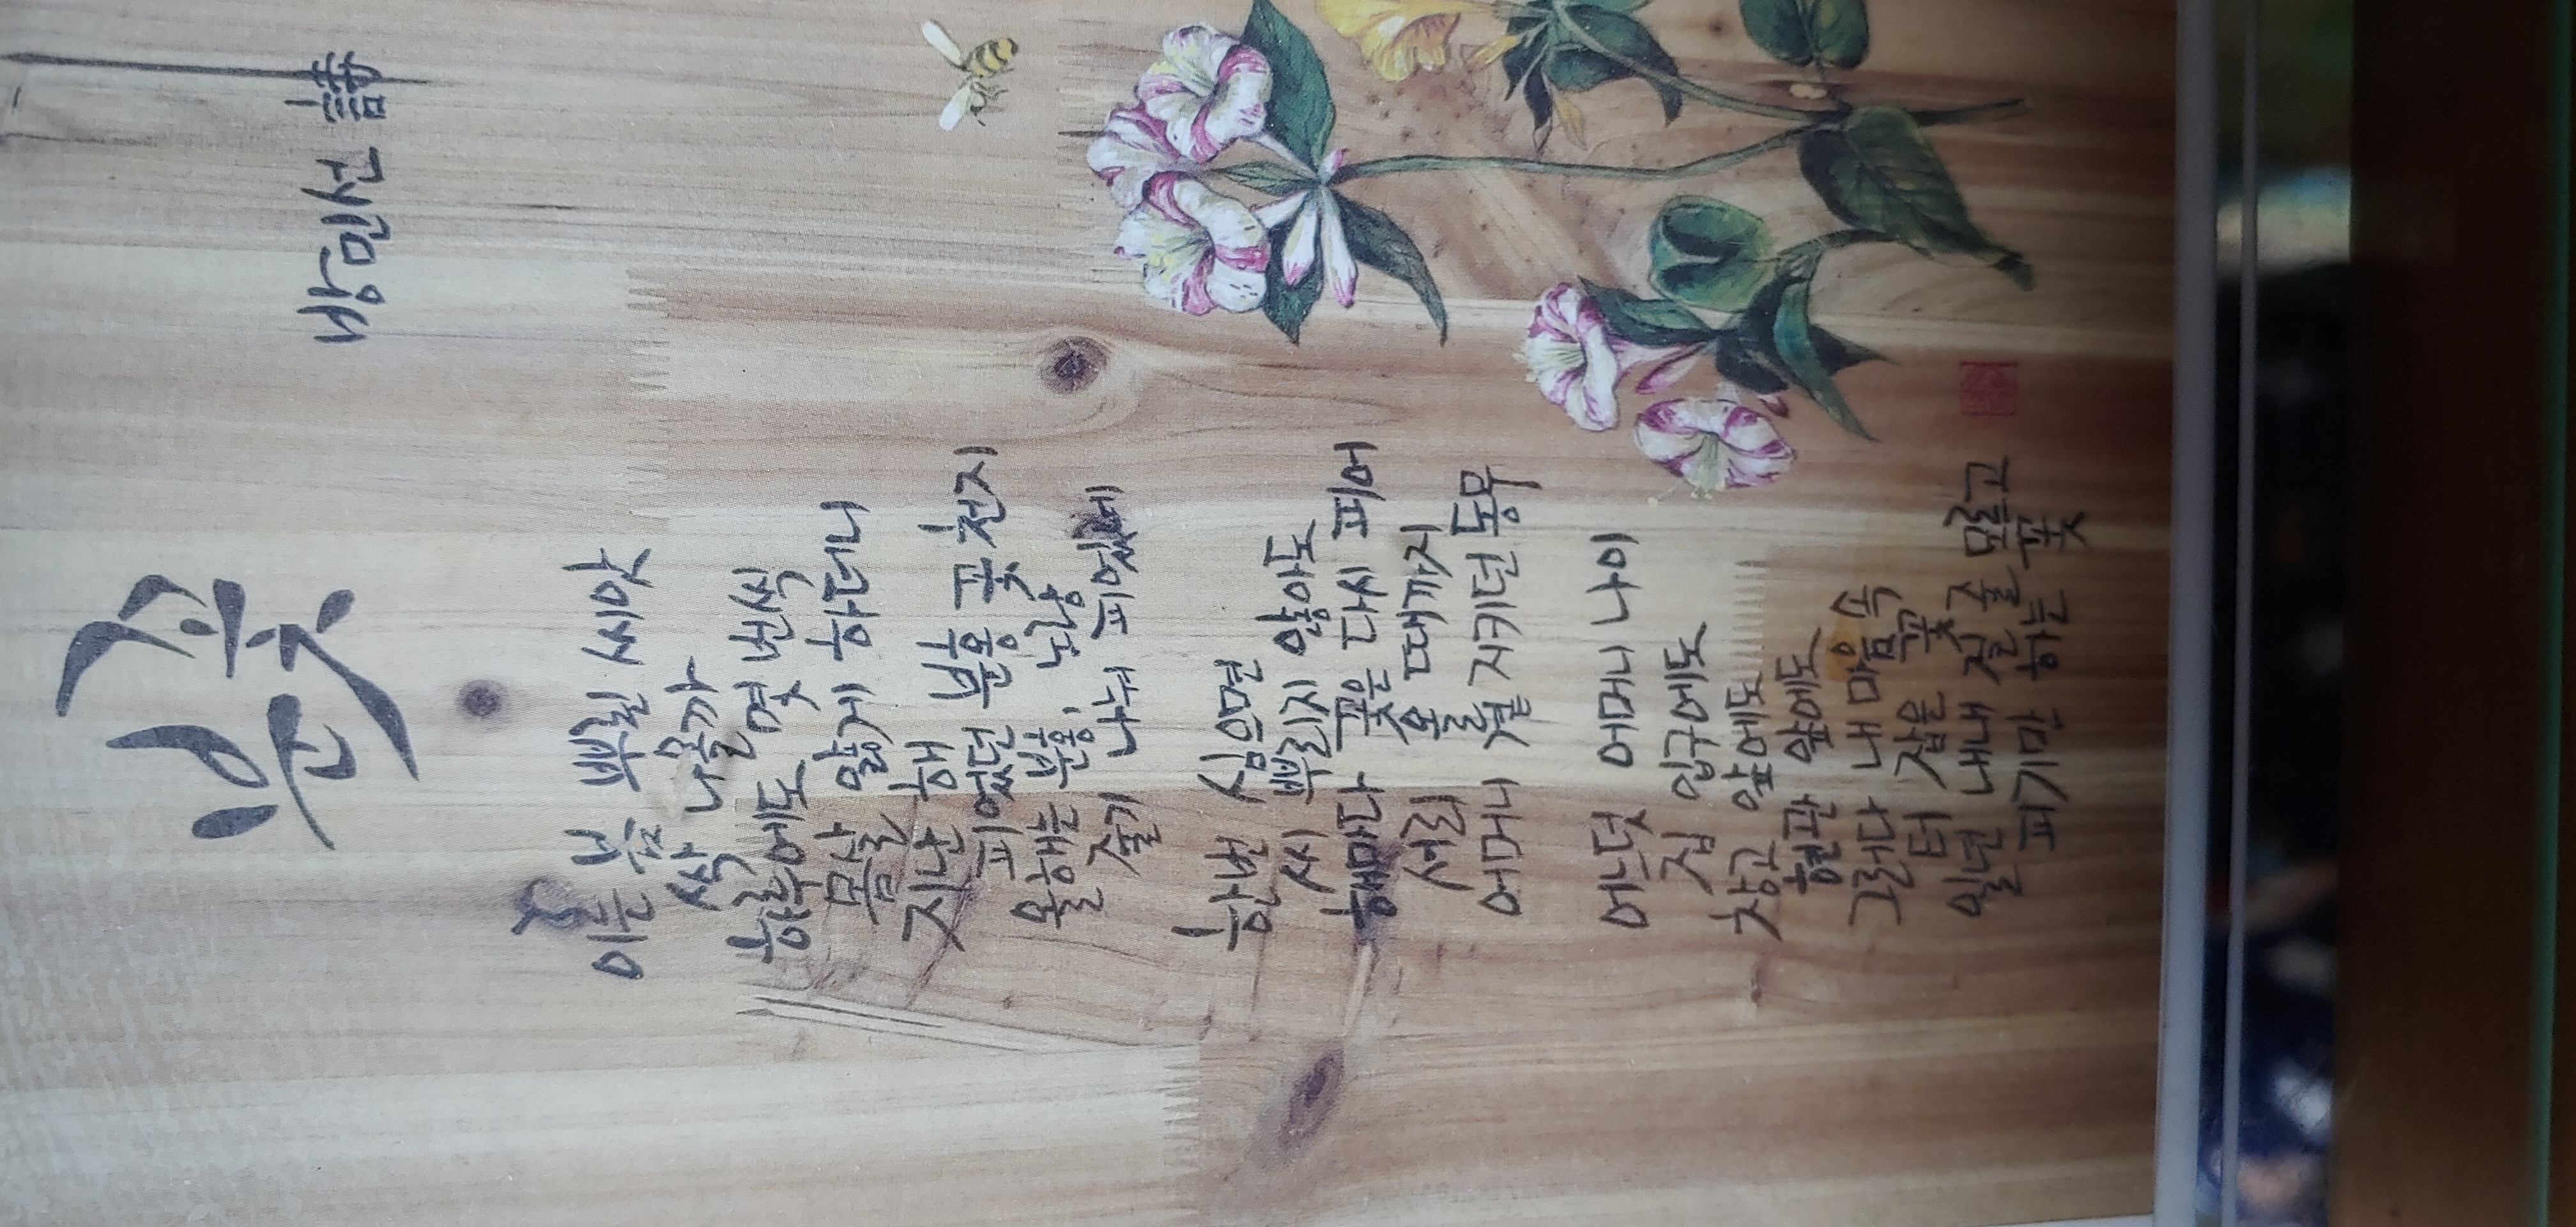 분꽃
방민선 詩
이른 봄 뿌린 씨앗
싹 나올까
하루에도 몇 번씩
몸살 앓게 하더니
지난 해
피었던 분홍 꽃 천지
올해는 분홍, 노랑
줄기 나눠 피었네
한번 심으면
씨 뿌리지 않아도
해마다 꽃은 다시 피어
서리 올 때까지
어머니 곁 지키던 동무
어느덧 어머니 나이
집 입구에도
창고 앞에도
현관 앞에도
그러다 내 마음 속
터 잡은 꽃
일년 내내 질 줄 모르고
피기만 하는 꽃